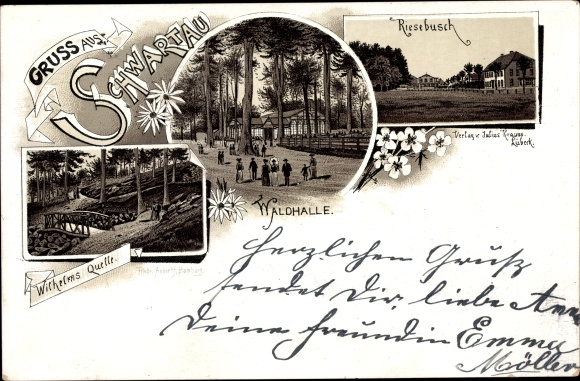 GRUSS AUS
SCHWARTAU
Riesebusch
Verlag v. Julius
Lübeck.
WALDHALLE.
Wilhelms Quelle.
Herzlichen Gruß
sendet Dir, liebe Anna
Deine Freundin Emma
Möller